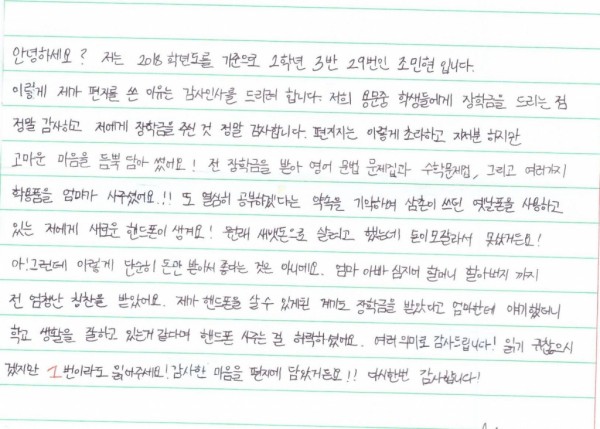 안녕하세요? 저는 2018 학년도를 기준으로 1학년 3반 29번인 조민현 입니다.
이렇게 제가 편지를 쓴 이유는 감사인사를 드리려 합니다. 저희 용문중 학생들에게 장학금을 드리는 점
정말 감사하고 저에게 장학금을 주신 것 정말 감사합니다. 편지지는 이렇게 초라하고 지저분 하지만
고마운 마음을 듬뿍 담아 썼어요! 전 장학금을 받아 영어 문법 문제집과 수학문제집, 그리고 여러가지
학용품을 엄마가 사주셨어요!! 또 열심히 공부하겠다는 약속을 기억하며 삼촌이 쓰던 옛날폰을 사용하고
있는 저에게 새로운 핸드폰이 생겨요! 원래 새뱃돈으로 살려고 했는데 돈이 모잘라서 못샀거든요!
아! 그런데 이렇게 단순히 돈만 받아서 좋다는 것은 아니에요. 엄마 아빠 심지에 할머니 할아버지 까지
전 엄청난 칭찬을 받았어요. 제가 핸드폰을 살 수 있게된 계기도 장학금을 받았다고 엄마한테 얘기했더니
학교 생활을 잘하고 있는거 같다며 핸드폰 사주는 걸 허락하셨어요. 여러 의미로 감사드립니다! 읽기 귀찮으시
겠지만 1번이라도 읽어주세요! 감사한 마음을 편지에 담았거든요!! 다시한번 감사합니다!